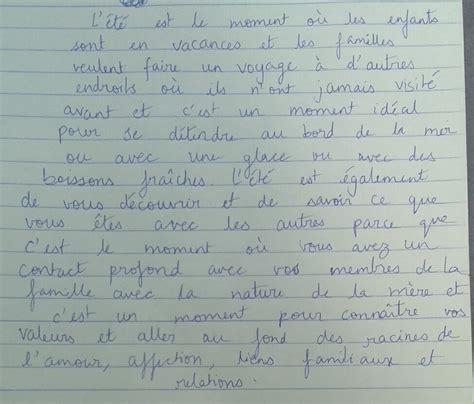 L'été est le moment où les enfants
sont en vacances et les familles
veulent faire un voyage à d'autres
endroits où ils n'ont jamais visité
avant et c'est un moment idéal
pour se détendre au bord de la mer
ou avec une glace ou avec des
boissons fraîches. L'été est également
de vous découvrir et de savoir ce que
vous êtes avec les autres parce que
c'est le moment où vous avez un
contact profond avec vos membres de la
famille avec la nature de la mère et
c'est un moment pour connaître vos
valeurs et aller au fond des racines de
l'amour, affection, liens familiaux et
relations.